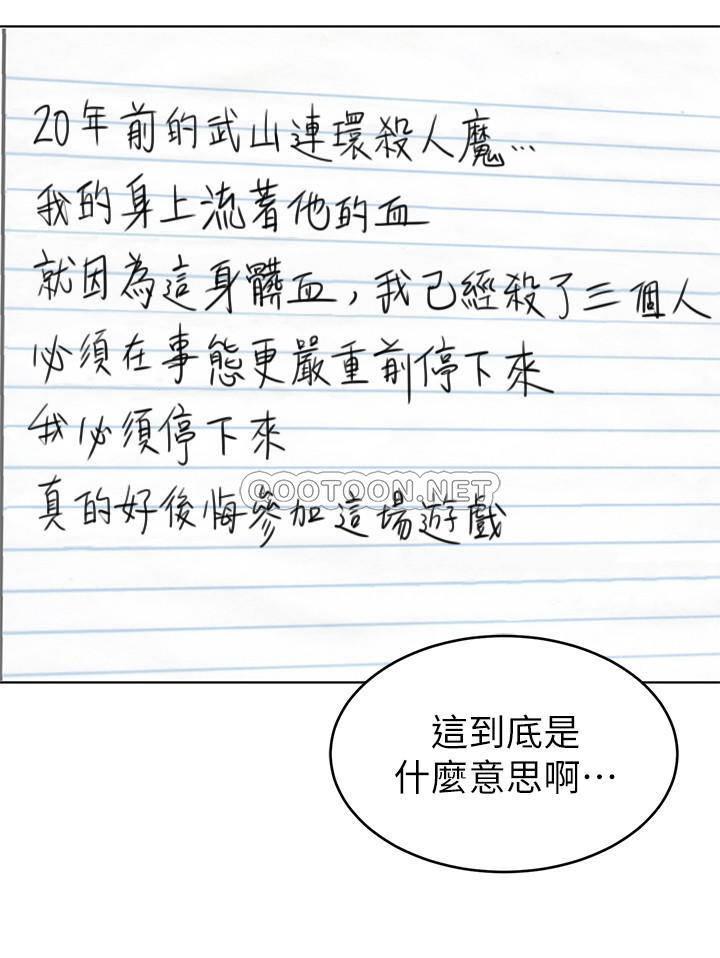 20年前的武山連環殺人魔…
我的身上流著他的血
就因為這身髒血，我已經殺了三個人
必須在事態更嚴重前停下來
我必須停下來
GOOTOON.NET
真的好後悔參加這場遊戲
這到底是
什麼意思啊…